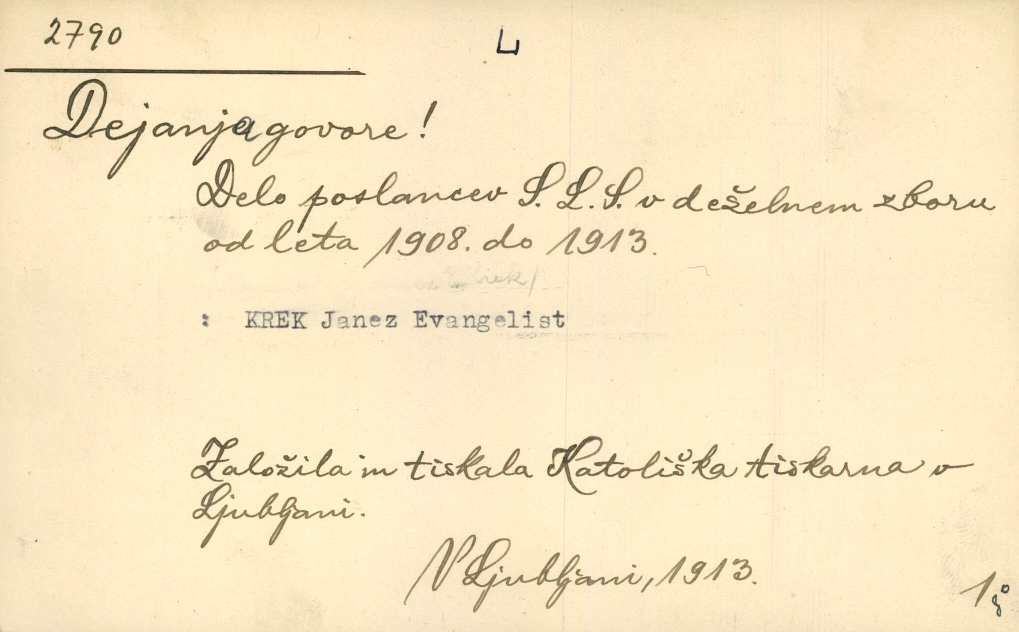 2790
L
Dejanja govore!
Delo poslancev S. L. S. v deželnem zboru
od leta 1908. do 1913.
: KREK Janez Evangelist
Založila in tiskala Katoliška tiskarna v
Ljubljani.
V Ljubljani, 1913.
1 8°